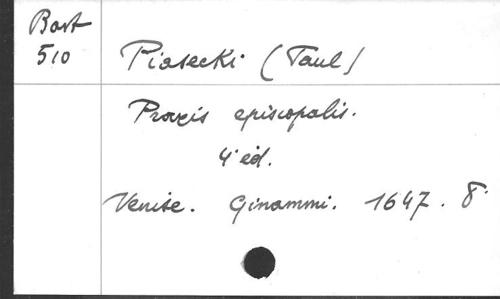 Bast
510
Piasecki (Paul)
Praxis episcopalis.
4e éd.
Venise. Ginammi. 1647. 8°